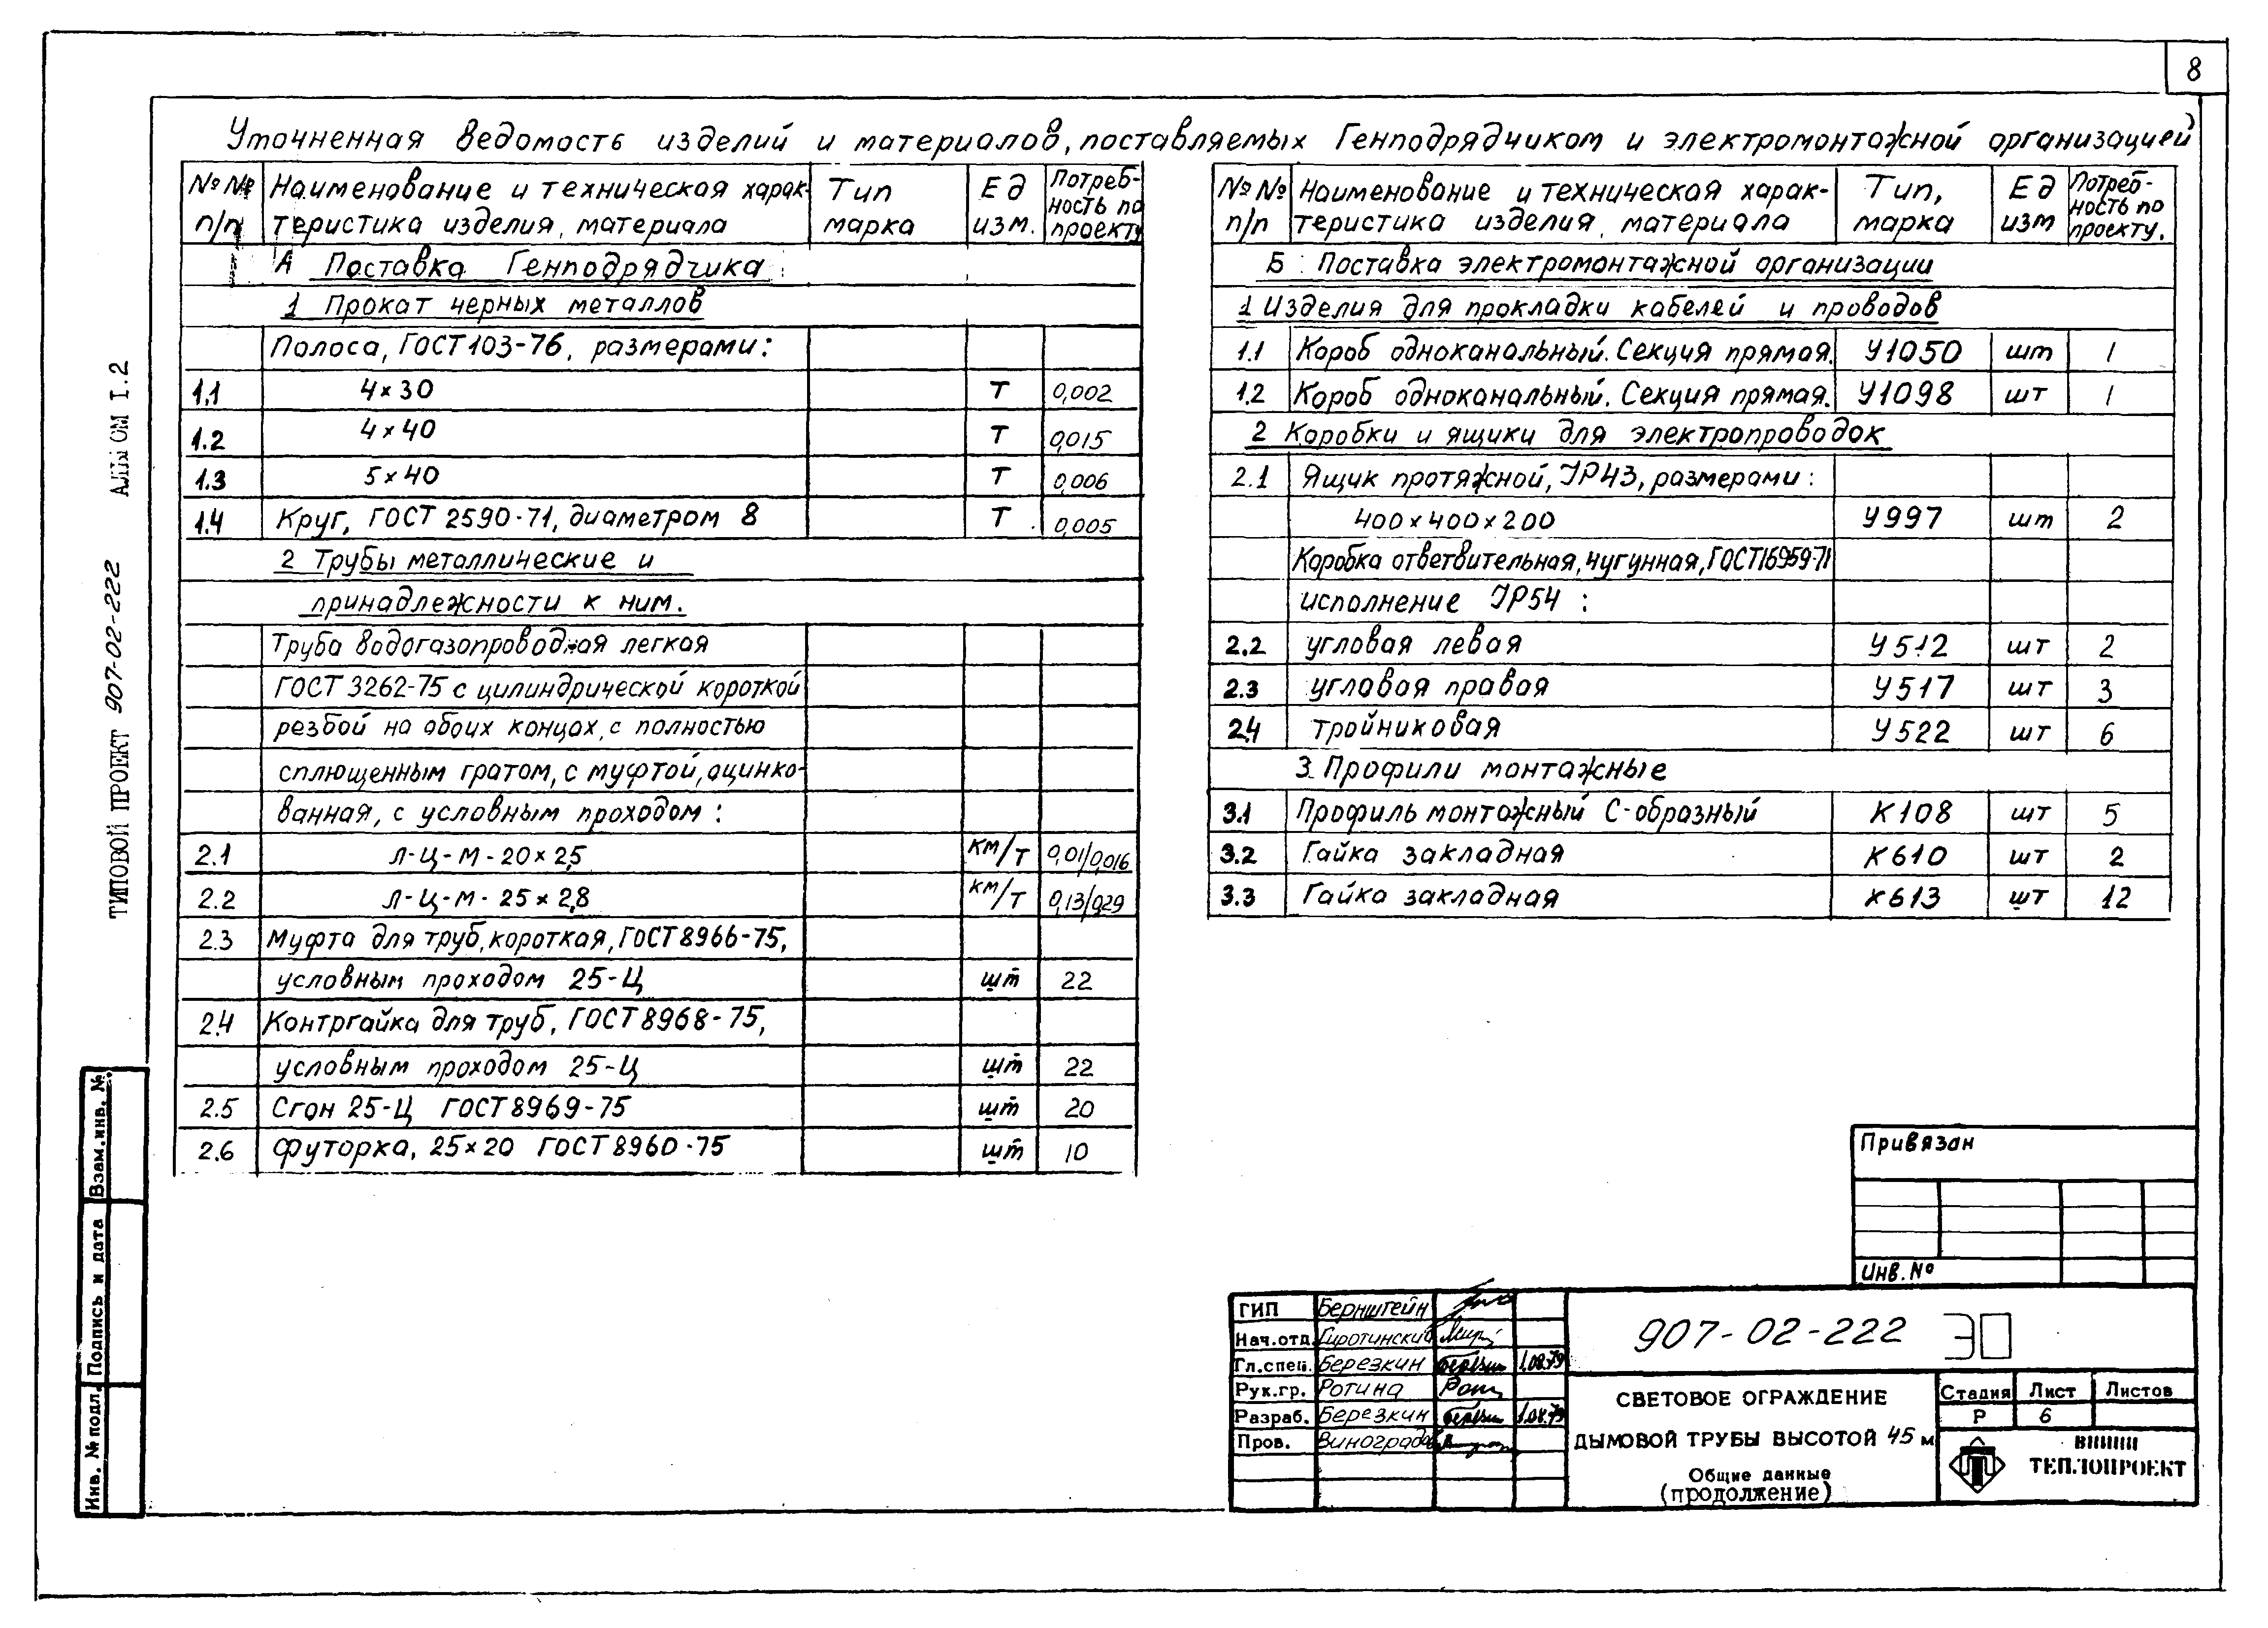 8
Уточненная ведомость изделий и материалов, поставляемых Генподрядчиком и электромонтажной организацией
№№ п/п Наименование и техническая характеристика изделия, материала Тип марка Ед изм. Потребность по проекту
А Поставка Генподрядчика
1 Прокат черных металлов
Полоса, ГОСТ 103-76, размерами:
1.1 4×30 Т 0,002
1.2 4×40 Т 0,015
1.3 5×40 Т 0,006
1.4 Круг, ГОСТ 2590-71, диаметром 8 Т 0,005
2 Трубы металлические и
принадлежности к ним.
Труба водогазопроводная легкая
ГОСТ 3262-75 с цилиндрической короткой
резбой на обоих концах, с полностью
сплющенным гратом, с муфтой, оцинко-
ванная, с условным проходом:
2.1 Л-Ц-М-20×2,5 км/т 0,01/0,016
2.2 Л-Ц-М-25×2,8 км/т 0,13/0,29
2.3 Муфта для труб, короткая, ГОСТ 8966-75,
условным проходом 25-Ц шт 22
2.4 Контргайка для труб, ГОСТ 8968-75,
условным проходом 25-Ц шт 22
2.5 Сгон 25-Ц ГОСТ 8969-75 шт 20
2.6 Футорка, 25×20 ГОСТ 8960-75 шт 10
№№ п/п Наименование и техническая характеристика изделия, материала Тип, марка Ед изм Потребность по проекту.
Б Поставка электромонтажной организации
1 Изделия для прокладки кабелей и проводов
1.1 Короб одноканальный. Секция прямая. У1050 шт 1
1.2 Короб одноканальный. Секция прямая. У1098 шт 1
2 Коробки и ящики для электропроводок
2.1 Ящик протяжной, IP43, размерами:
400×400×200 У997 шт 2
Коробка ответвительная, чугунная, ГОСТ 16959-71
исполнение IP54 :
2.2 угловая левая У512 шт 2
2.3 угловая правая У517 шт 3
2.4 тройниковая У522 шт 6
3 Профили монтажные
3.1 Профиль монтажный С-образный К108 шт 5
3.2 Гайка закладная К610 шт 2
3.3 Гайка закладная К613 шт 12
ТИПОВОЙ ПРОЕКТ 907-02-222 АЛЬБОМ I.2
Взам.инв. №
Подпись и дата
Инв. № подл.
Привязан
Инв. №
ГИП Бернштейн
Нач.отд. Сиротинский
Гл.спец. Березкин Березкин 1.08.79
Рук.гр. Ротина
Разраб. Березкин Березкин 1.08.79
Пров. Виноградова
907-02-222 ЭО
СВЕТОВОЕ ОГРАЖДЕНИЕ
ДЫМОВОЙ ТРУБЫ ВЫСОТОЙ 45 м
Общие данные
(продолжение)
Стадия Лист Листов
Р 6
ВНИПИ
ТЕПЛОПРОЕКТ